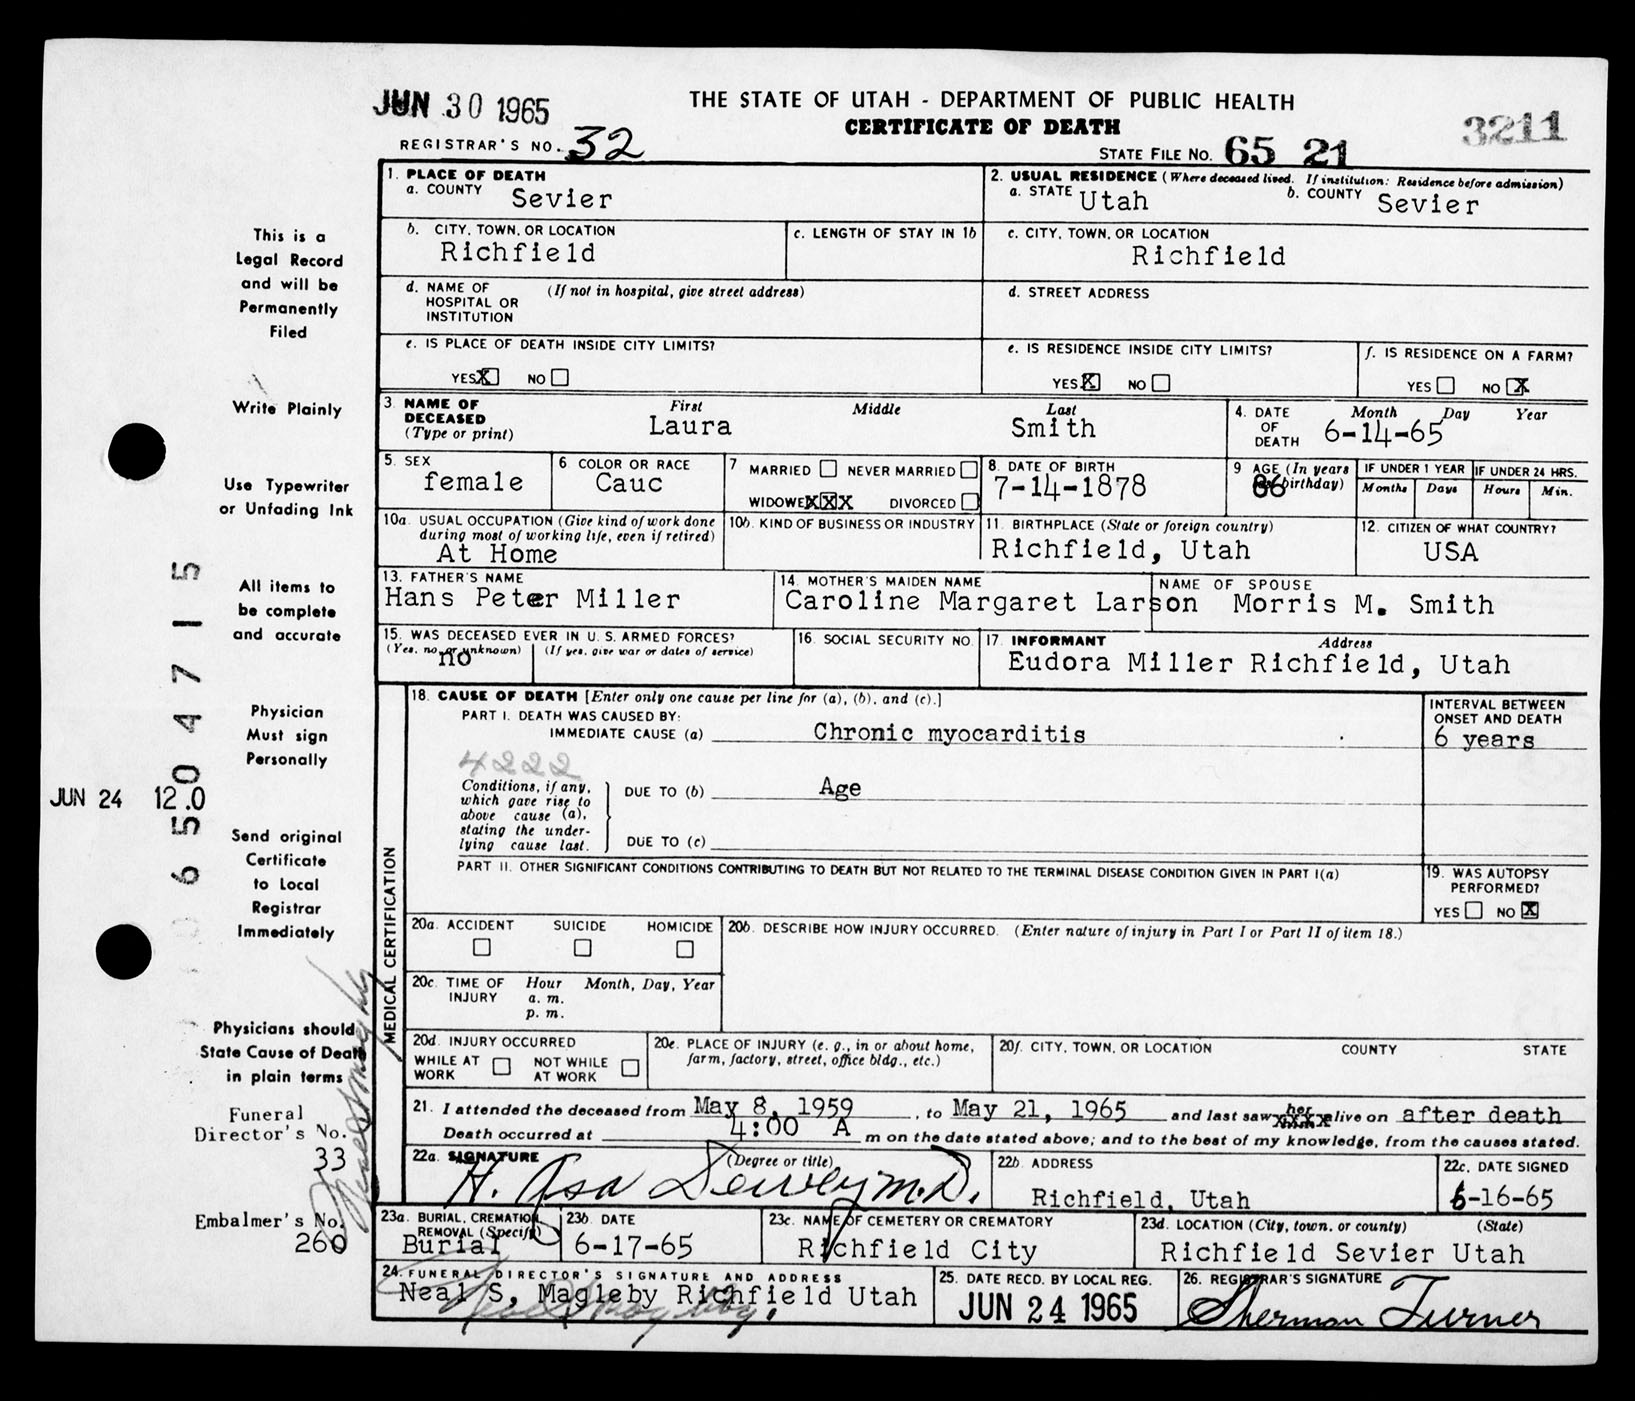 JUN 30 1965
THE STATE OF UTAH - DEPARTMENT OF PUBLIC HEALTH
CERTIFICATE OF DEATH
3211
REGISTRAR'S NO. 32
STATE FILE NO. 65 21
1. PLACE OF DEATH
a. COUNTY Sevier
2. USUAL RESIDENCE (Where deceased lived. If institution: Residence before admission)
a. STATE Utah b. COUNTY Sevier
b. CITY, TOWN, OR LOCATION Richfield
c. LENGTH OF STAY IN 1b
c. CITY, TOWN, OR LOCATION Richfield
d. NAME OF HOSPITAL OR INSTITUTION (If not in hospital, give street address)
d. STREET ADDRESS
e. IS PLACE OF DEATH INSIDE CITY LIMITS?
YES X NO
e. IS RESIDENCE INSIDE CITY LIMITS?
YES X NO
f. IS RESIDENCE ON A FARM?
YES NO X
3. NAME OF DECEASED (Type or print)
First Middle Last
Laura Smith
4. DATE OF DEATH
Month Day Year
6-14-65
5. SEX female
6. COLOR OR RACE Cauc
7 MARRIED NEVER MARRIED
WIDOWEXXX DIVORCED
8. DATE OF BIRTH 7-14-1878
9 AGE (In years birthday) 86
IF UNDER 1 YEAR Months Days
IF UNDER 24 HRS. Hours Min.
10a. USUAL OCCUPATION (Give kind of work done during most of working life, even if retired) At Home
10b. KIND OF BUSINESS OR INDUSTRY
11. BIRTHPLACE (State or foreign country) Richfield, Utah
12. CITIZEN OF WHAT COUNTRY? USA
13. FATHER'S NAME Hans Peter Miller
14. MOTHER'S MAIDEN NAME Caroline Margaret Larson
NAME OF SPOUSE Morris M. Smith
15. WAS DECEASED EVER IN U. S. ARMED FORCES?
(Yes, no, or unknown) (If yes, give war or dates of service)
no
16. SOCIAL SECURITY NO.
17. INFORMANT Address
Eudora Miller Richfield, Utah
MEDICAL CERTIFICATION
18. CAUSE OF DEATH [Enter only one cause per line for (a), (b), and (c).]
PART I. DEATH WAS CAUSED BY:
IMMEDIATE CAUSE (a) Chronic myocarditis
INTERVAL BETWEEN ONSET AND DEATH
6 years
4222
Conditions, if any, which gave rise to above cause (a), stating the underlying cause last.
DUE TO (b) Age
DUE TO (c)
PART II. OTHER SIGNIFICANT CONDITIONS CONTRIBUTING TO DEATH BUT NOT RELATED TO THE TERMINAL DISEASE CONDITION GIVEN IN PART I(a)
19. WAS AUTOPSY PERFORMED?
YES NO X
20a. ACCIDENT SUICIDE HOMICIDE
20b. DESCRIBE HOW INJURY OCCURRED. (Enter nature of injury in Part I or Part II of item 18.)
20c. TIME OF INJURY Hour Month, Day, Year
a. m.
p. m.
20d. INJURY OCCURRED
WHILE AT WORK NOT WHILE AT WORK
20e. PLACE OF INJURY (e. g., in or about home, farm, factory, street, office bldg., etc.)
20f. CITY, TOWN, OR LOCATION COUNTY STATE
21. I attended the deceased from May 8, 1959, to May 21, 1965 and last saw her alive on after death
Death occurred at 4:00 A m on the date stated above; and to the best of my knowledge, from the causes stated.
22a. SIGNATURE (Degree or title)
H. Asa Dewey M.D.
22b. ADDRESS
Richfield, Utah
22c. DATE SIGNED
6-16-65
23a. BURIAL, CREMATION, REMOVAL (Specify)
Burial
23b. DATE
6-17-65
23c. NAME OF CEMETERY OR CREMATORY
Richfield City
23d. LOCATION (City, town, or county) (State)
Richfield Sevier Utah
24. FUNERAL DIRECTOR'S SIGNATURE AND ADDRESS
Neal S, Magleby Richfield Utah
Neal S Magleby
25. DATE RECD. BY LOCAL REG.
JUN 24 1965
26. REGISTRAR'S SIGNATURE
Sherman Turner
This is a
Legal Record
and will be
Permanently
Filed
Write Plainly
Use Typewriter
or Unfading Ink
All items to
be complete
and accurate
Physician
Must sign
Personally
JUN 24 12.0
Send original
Certificate
to Local
Registrar
Immediately
Physicians should
State Cause of Death
in plain terms
Funeral
Director's No.
33
Embalmer's No.
260
Neal S Magleby
6 5 0 4 7 1 5